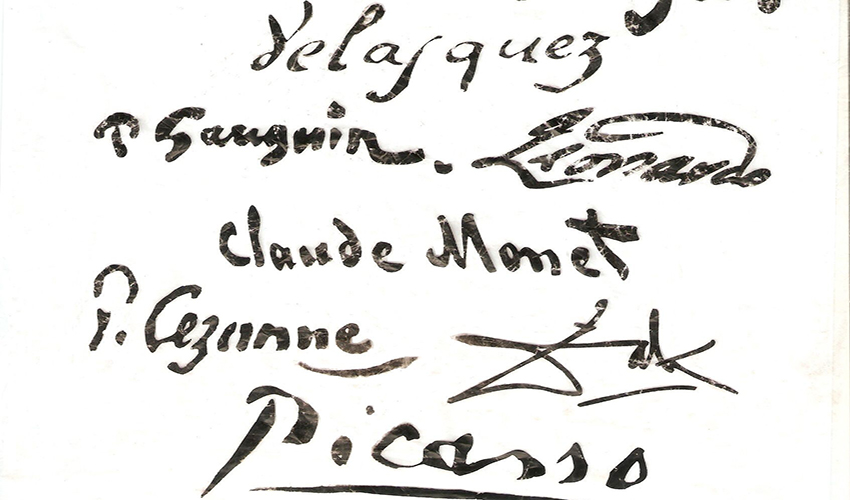 Velasquez
P Gauguin. Leonardo
Claude Monet
P. Cezanne Dali
Picasso